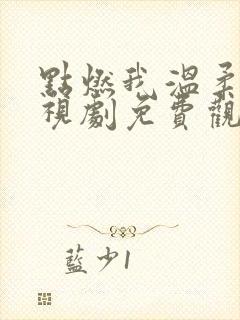 點燃我溫柔
視劇免費觀
藍少1